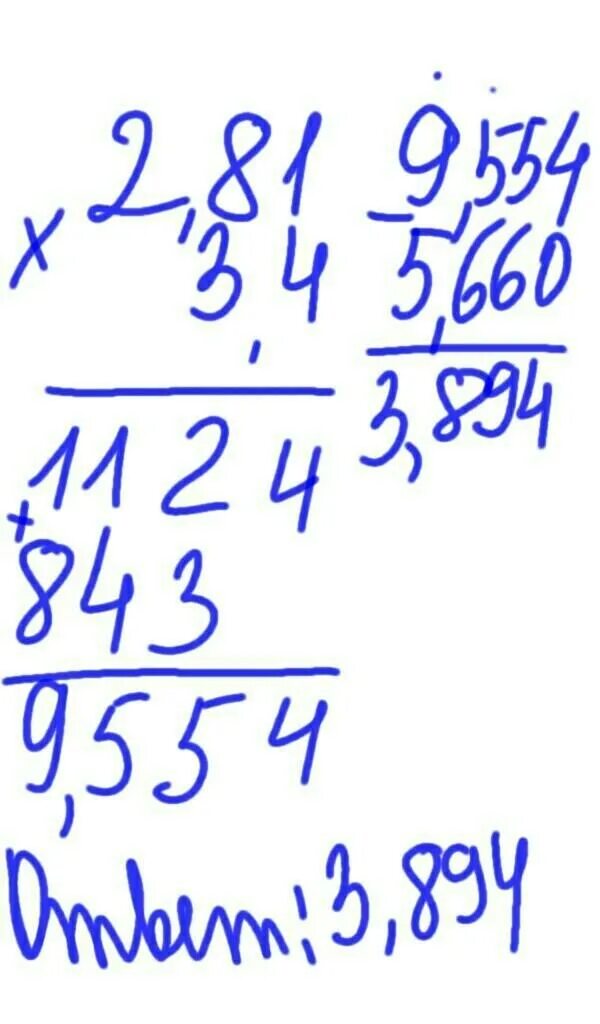 2,81
× 3,4
1124
+
843
9,554
9,554
− 5,660
3,894
Ответ: 3,894